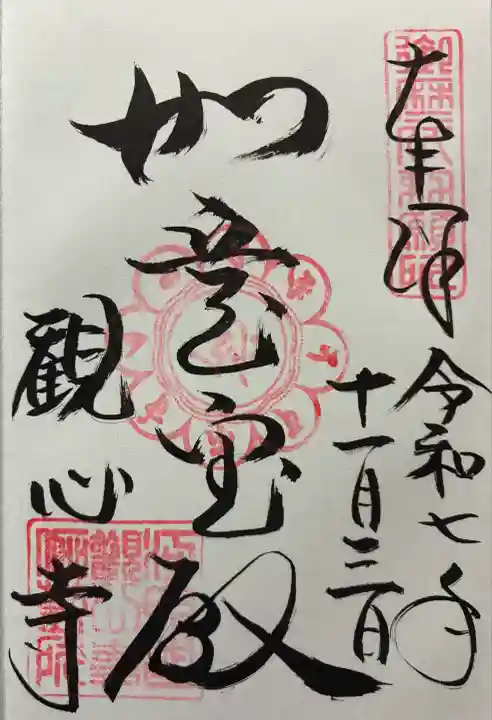 奉拝
令和七年
十一月三日
如意宝殿
観心寺